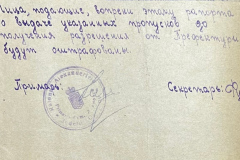 Лица, подающие, вопреки этому рапорта
о выдаче указанных пропусков до
получения разрешения от Префектуры
будут оштрафованы.
Примарь: Секретарь: